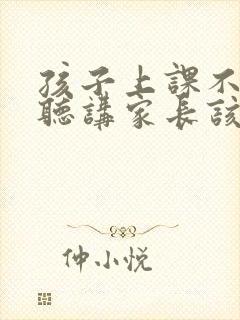 孩子上課不
聽講家長該
仲小悦